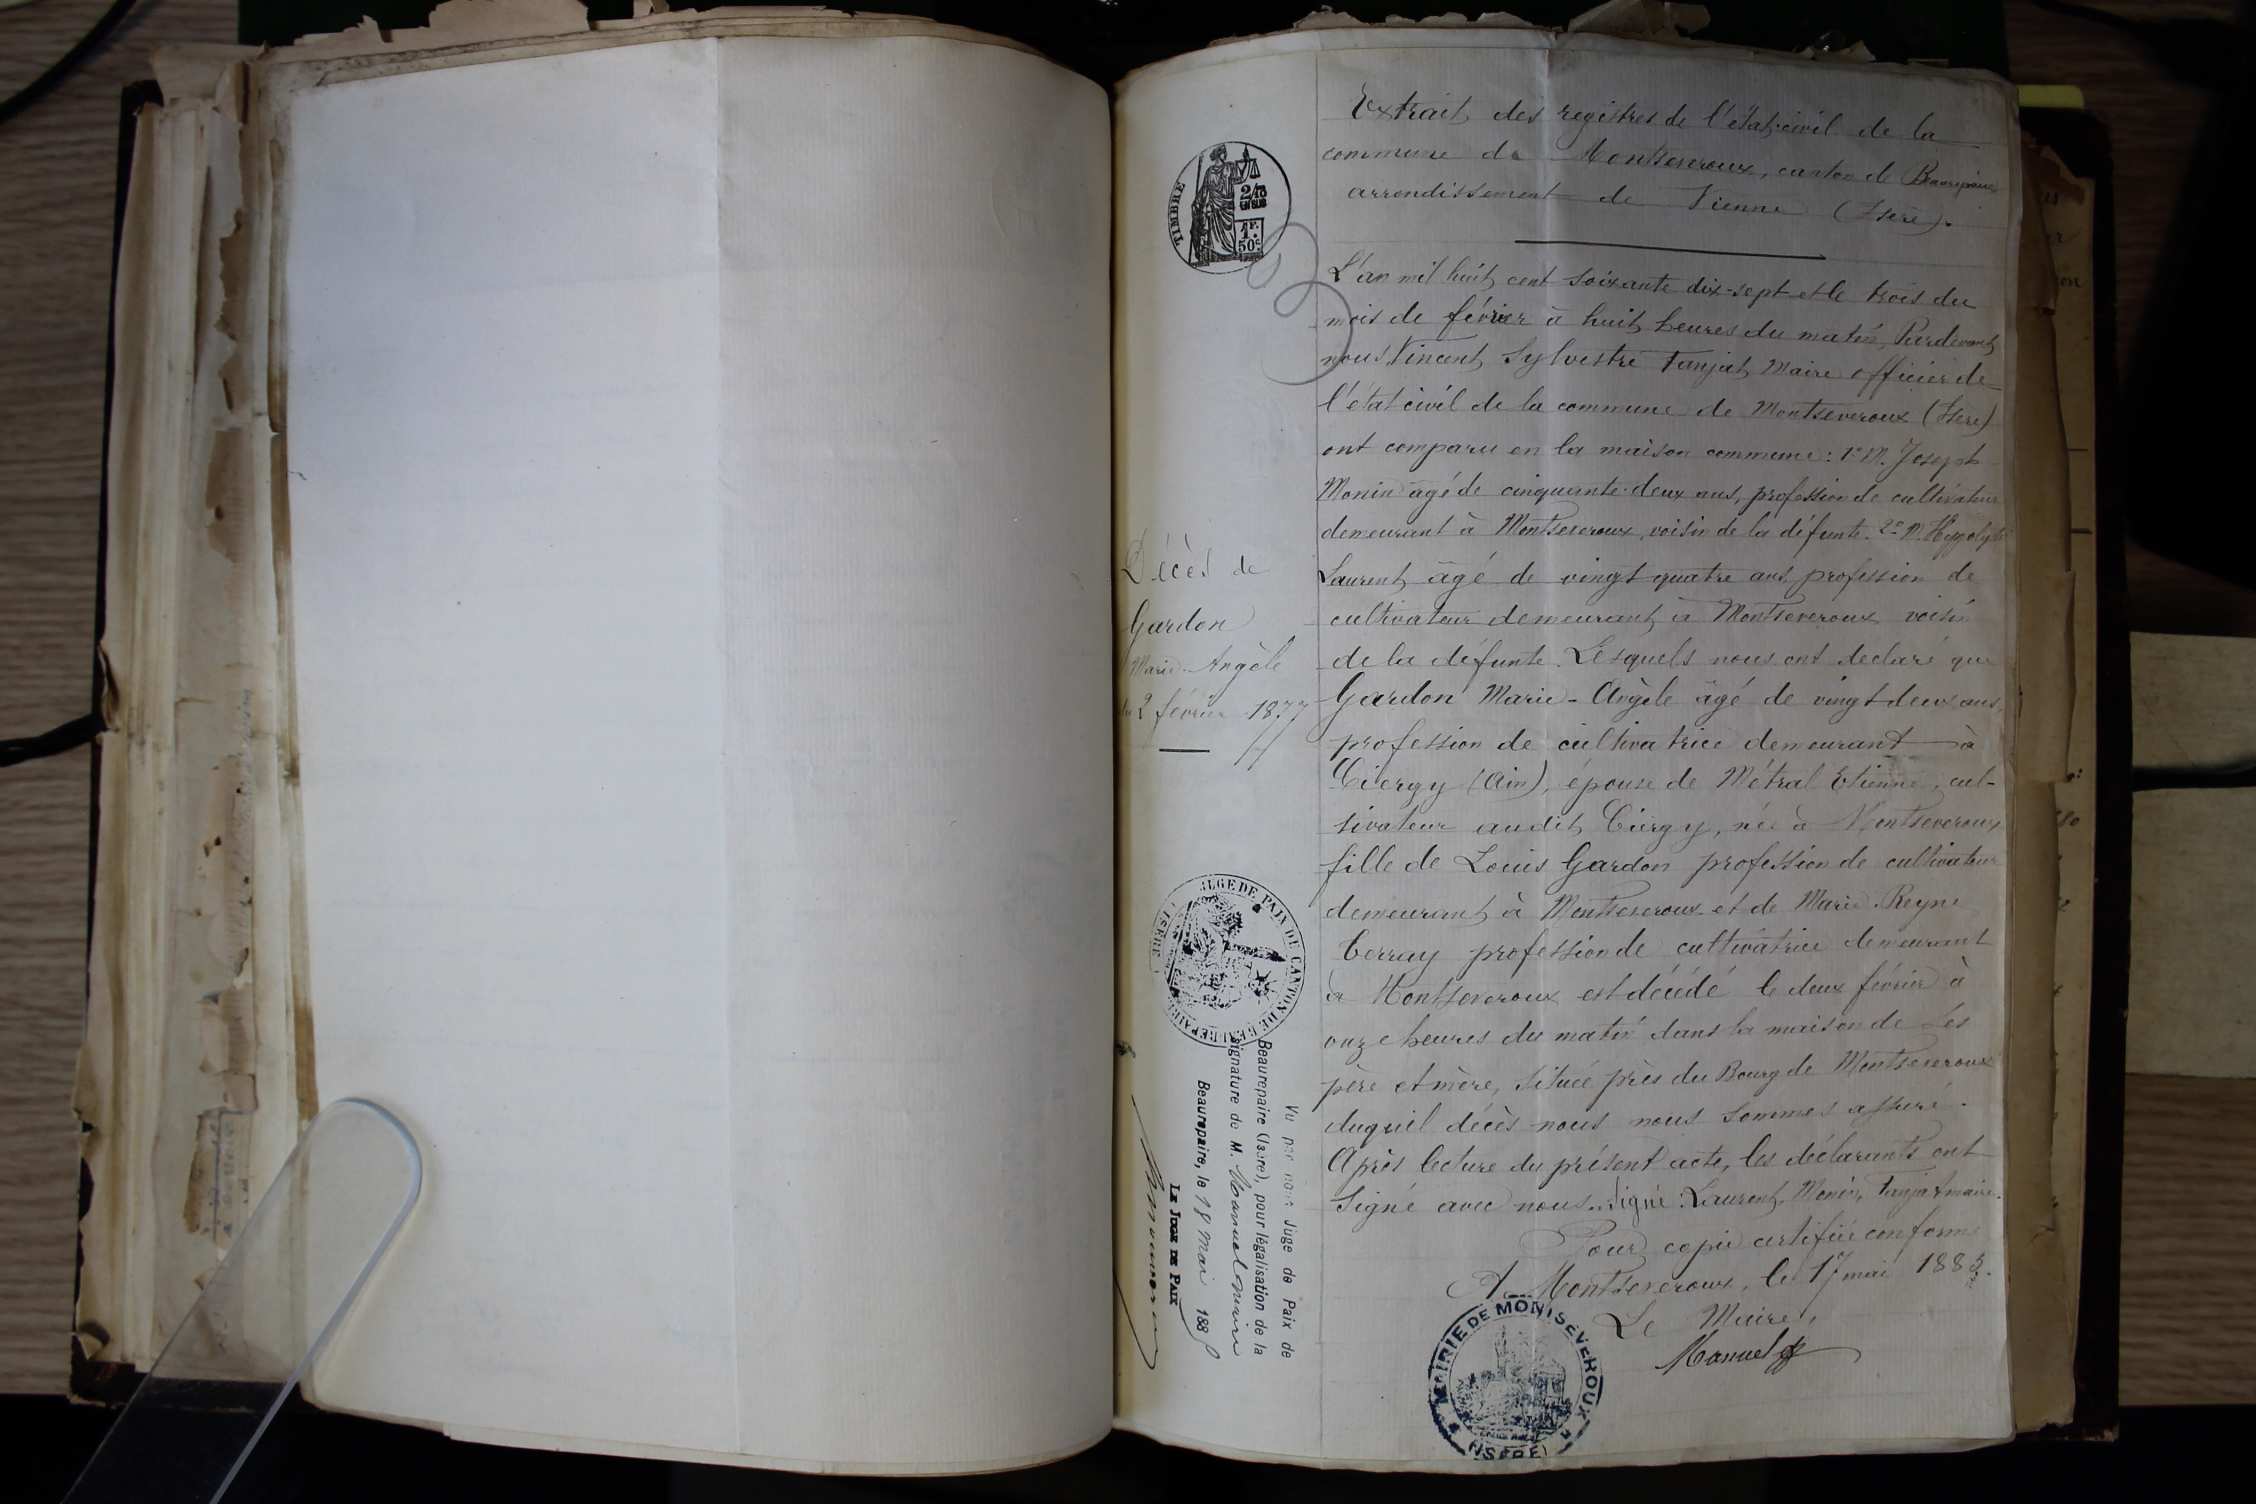 Extrait des registres de l'état-civil de la
commune de Montseveroux, canton de Beaurepaire
arrondissement de Vienne (Isère).
TIMBRE
2/10
EN SUS
1F.
50c
L'an mil huit cent soixante dix-sept et le trois du
mois de février à huit heures du matin, Pardevant
nous Vincent Sylvestre Fanjat Maire officier de
l'état civil de la commune de Montseveroux (Isère)
ont comparu en la maison commune : 1° M. Joseph
Monin âgé de cinquante-deux ans, profession de cultivateur
demeurant à Montseveroux, voisin de la défunte. 2° M. Hippolyte
Laurent âgé de vingt quatre ans profession de
cultivateur demeurant à Montseveroux voisin
de la défunte. Lesquels nous ont déclaré que
Gardon Marie-Angèle âgé de vingt deux ans,
profession de cultivatrice demeurant à
Civrgy (Ain), épouse de Métral Etienne, cul-
tivateur audit Civrgy, née à Montseveroux
fille de Louis Gardon profession de cultivateur
demeurant à Montseveroux et de Marie Reyne
Cerray profession de cultivatrice demeurant
à Montseveroux est décédé le deux février à
onze heures du matin dans la maison de ses
père et mère, située près du Bourg de Montseveroux
duquel décès nous nous sommes assuré.
Après lecture du présent acte, les déclarants ont
signé avec nous. Signé : Laurent, Monin, Fanjat maire.
Pour copie certifiée conforme
A Montseveroux, le 17 mai 1885.
Le Maire,
Manuel
MAIRIE DE MONTSEVEROUX
(ISÈRE)
Décès de
Gardon
Marie-Angèle
du 2 février 1877
JUGE DE PAIX DE CANTON DE BEAUREPAIRE (ISERE)
Vu par nous Juge de Paix de
Beaurepaire (Isère), pour légalisation de la
signature de M. Manuel maire
Beaurepaire, le 18 mai 188
LE JUGE DE PAIX